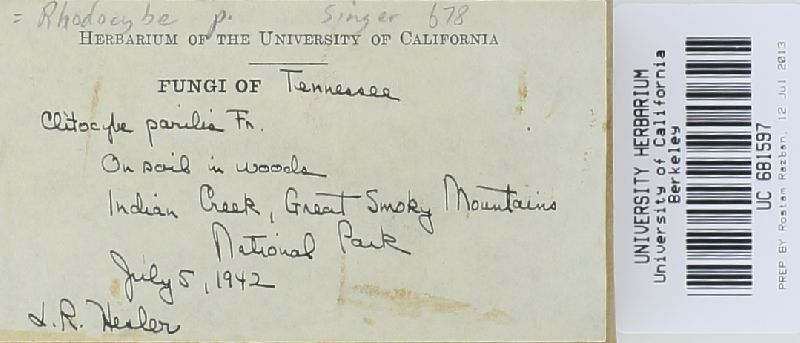 = Rhodocybe p. Singer 678
HERBARIUM OF THE UNIVERSITY OF CALIFORNIA
FUNGI OF Tennessee
Clitocybe parilis Fr.
On soil in woods
Indian Creek, Great Smoky Mountains
National Park
July 5, 1942
L.R. Hesler
UNIVERSITY HERBARIUM
University of California
Berkeley
UC 681597
PREP BY Rostam Razban, 12 Jul 2013